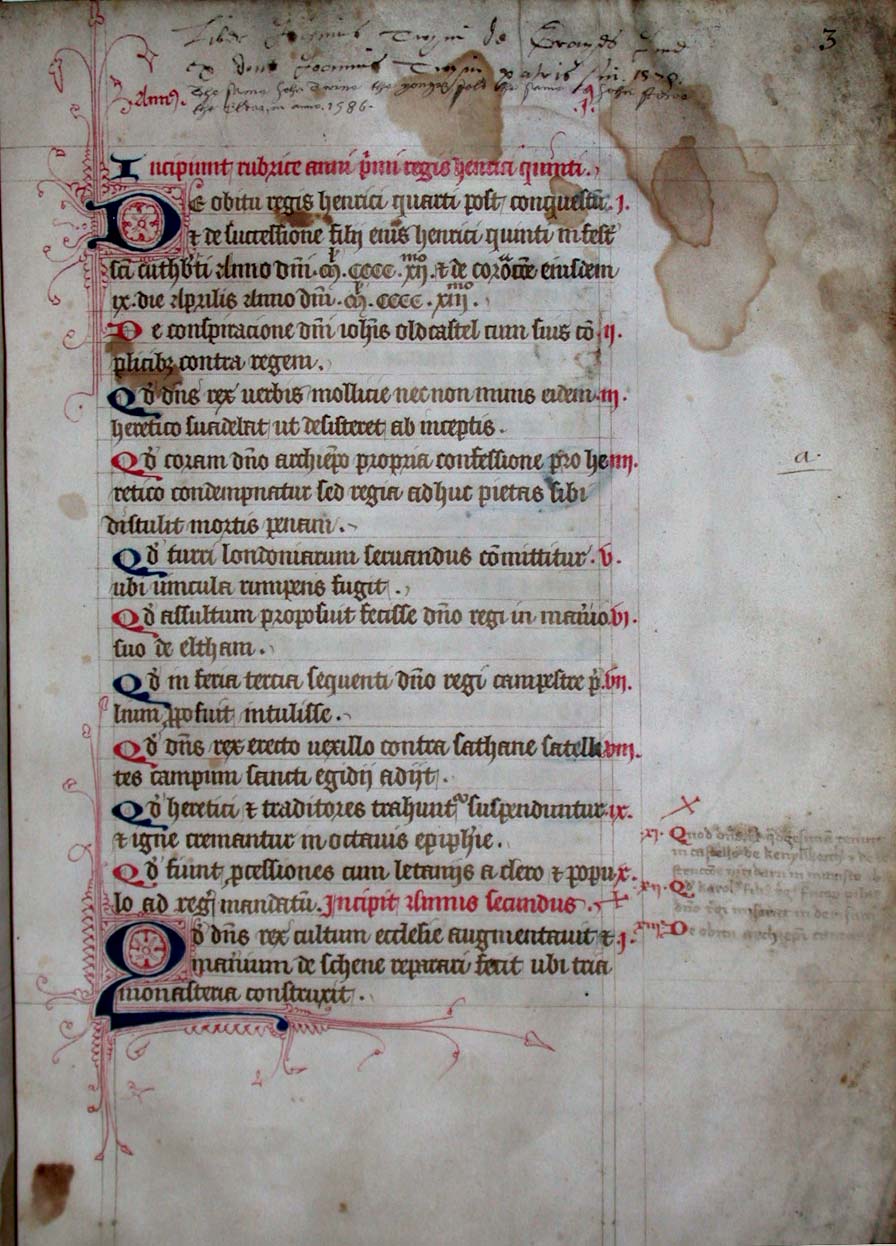 3
Liber Johannis de
Ex dono Johannis patris sui. 1578.
The same John the yonger sold the same to John
the elder in anno. 1586.
Annus. 9
1.
Incipiunt rubrice anni p̄mi regis henrici quinti.
De obitu regis henrici quarti post conquestū. j.
⁊ de successione filij eius henrici quinti in fest̄
scī cuthb̄ti Anno dn̄i .Ml. cccc .xij.mo ⁊ de coroac̄oe eiusdem
ix. die Aprilis Anno dn̄i .Ml. cccc .xiij.mo
De conspiracione dn̄i ioh̄is oldcastel cum suis cō ij.
plicibꝫ contra regem.
Qd̄ dn̄s rex uerbis mollicie nec non munis eidem iij.
heretico suadebat ut desisteret ab inceptis.
Qd̄ coram dn̄o archiep̄o propria confessione pro he iiij.
retico condempnatur sed regia adhuc pietas sibi
distulit mortis penam.
Qd̄ turri londoniarum seruandus cōmittitur. v.
ubi uincula rumpens fugit.
Qd̄ assultum proposuit fecisse dn̄o regi in man̄io vj.
suo de eltham.
Qd̄ in feria tercia sequenti dn̄o regi campestre p̄ vij.
lium ꝓposuit intulisse.
Qd̄ dn̄s rex erecto uexillo contra sathane satelli viij.
tes campum sancti egidij adijt.
Qd̄ heretici ⁊ traditores trahunt᷑ suspenduntur ix.
⁊ igne cremantur in octauis epiphīe.
Qd̄ fiunt ꝓcessiones cum letanijs a clero ⁊ popu x.
lo ad regī mandatū. Incipit Annus secundus.
Qd̄ dn̄s rex cultum ecclesie augmentauit ⁊ j.
manium de schene reparari fecit ubi tria
monasteria construxit.
a.
xi. Quod dn̄s
in castello de kenylworth
xij. Qd̄
xiij. De obitu archiep̄i